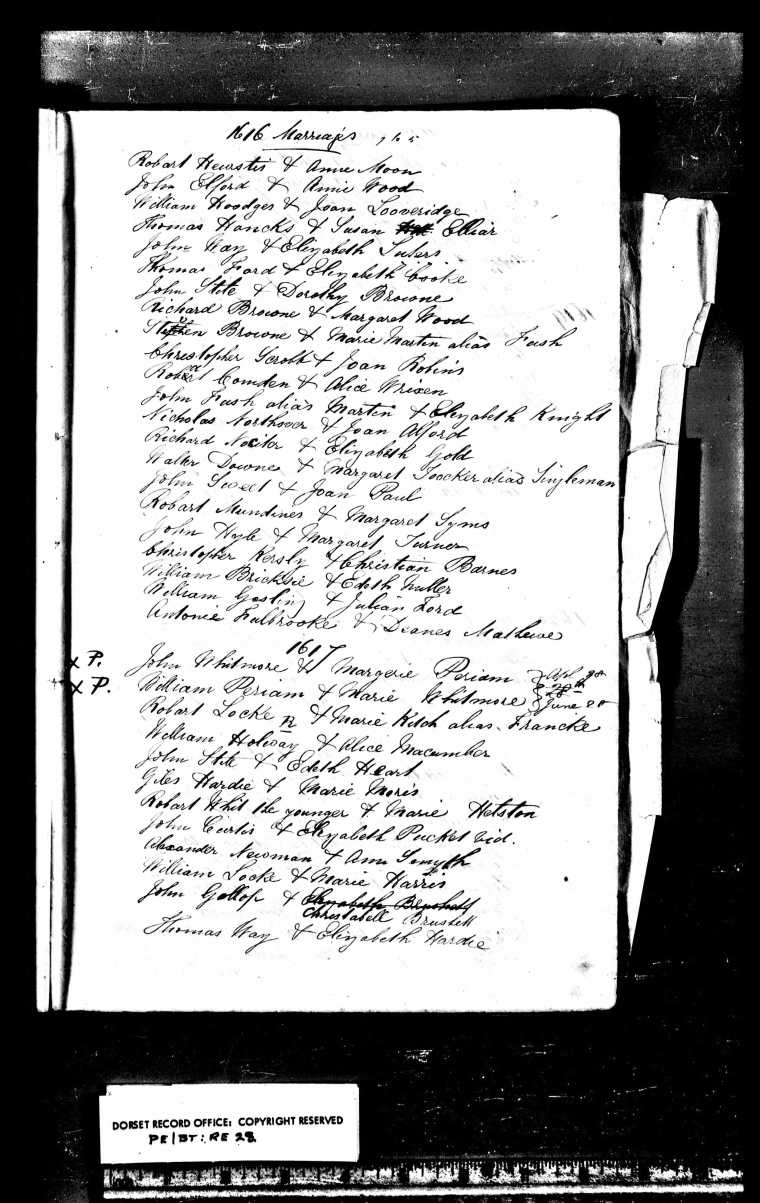 1616 Marriages
Robart Hewstis & Anne Moon
John Elford & Annie Wood
William Hoodges & Joan Looveridge
Thomas Hancks & Susan Elliar
John Way & Elizabeth
Thomas Ford & Elizabeth Cooke
John Stite & Dorothy Browne
Richard Browne & Margaret Wood
Stephen Browne & Marie Martin alias Fush
Christopher & Joan Robins
Robert Comden & Alice Wrixen
John Fush alias Martin & Elizabeth Knight
Nicholas Northover & Joan Alford
Richard & Elizabeth Gold
Walter Downe & Margaret Toocker alias Singleman
John Sweet & Joan Paul
Robart Mundines & Margaret Syms
John Hyle & Margaret Turner
Christopher Kersly & Christian Barnes
William Bricksie & Edeth Muller
William Goslin & Julian Ford
Antonie Fulbrooke & Deanes Mathewe
1617
x P. John Whitmore & Margerie Periam
x P. William Periam & Marie Whitmore June
Robart Locke & Marie Kitch alias Francke
William Holway & Alice Macumber
John Stite & Edeth Heart
Giles Hardie & Marie Moris
Robart Whit the younger & Marie Helston
John Curtis & Elizabeth Pucket vid.
Alexander Newman & Ann Smyth
William Locke & Marie Harris
John Gollop & Elizabeth Brushell
Christabell Brushell
Thomas Way & Elizabeth Hardie
DORSET RECORD OFFICE: COPYRIGHT RESERVED
PE/BT: RE 28